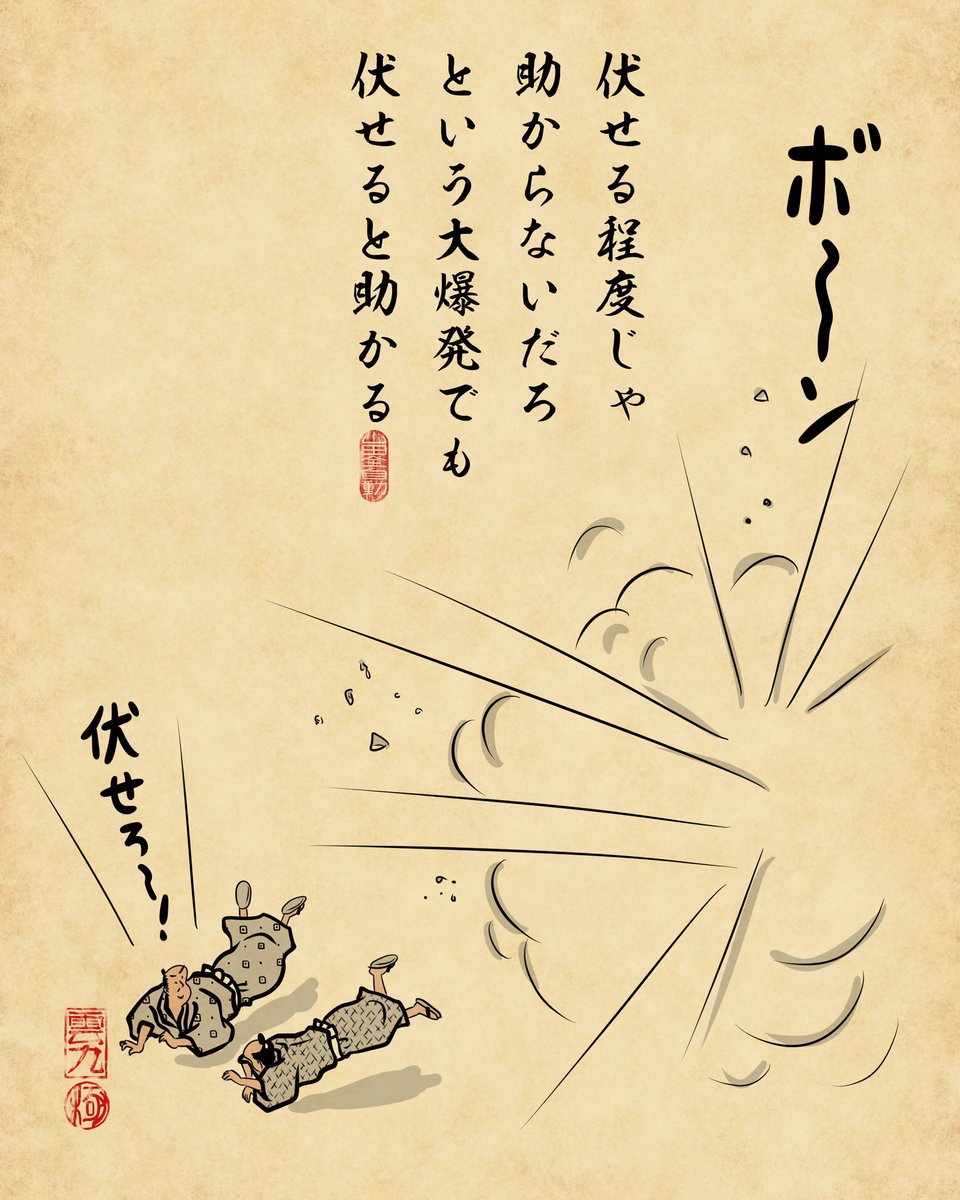 ボ〜ン
伏せる程度じゃ
助からないだろ
という大爆発でも
伏せると助かる
伏せろ〜!
雲九
極